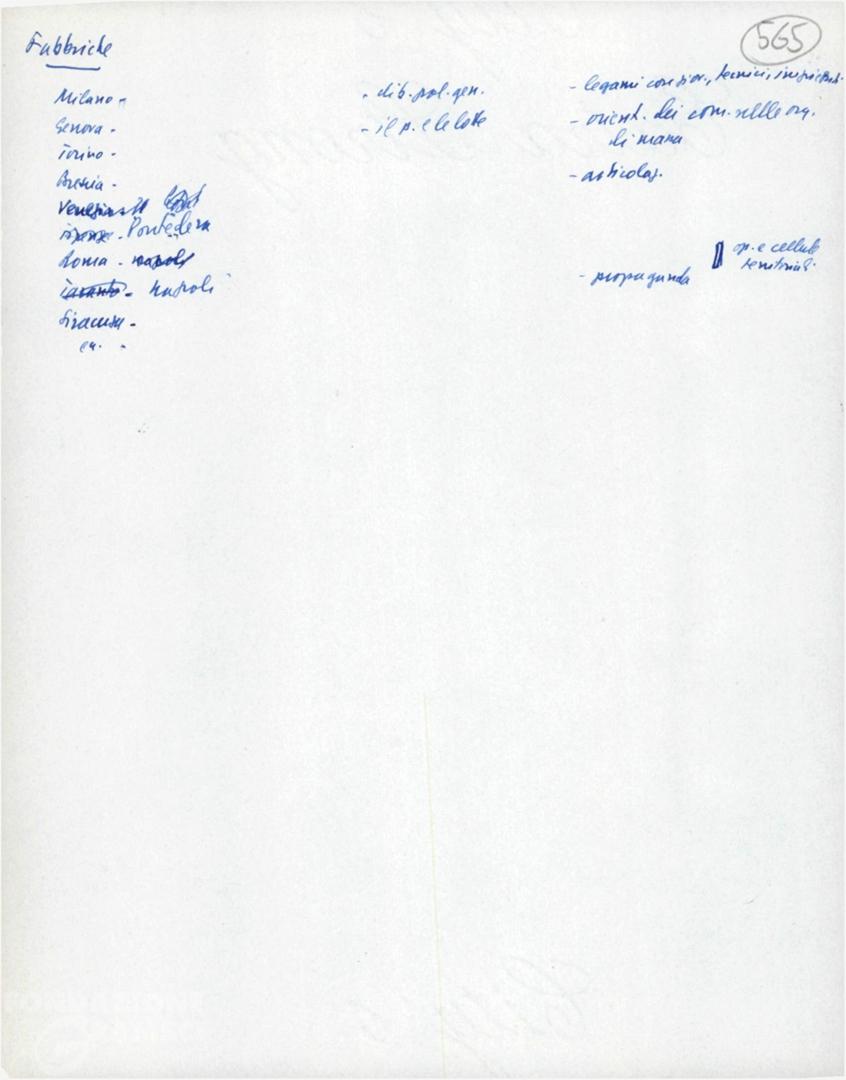 565
Fabbriche
Milano -
Genova -
Torino -
Brescia -
Venezia
Firenze - Pontedera
Roma - Napoli
Taranto - Napoli
Siracusa -
- dib. pol. gen.
- il p. e le lotte
- legami con sior., tecnici,
- orient. dei com. nelle org.
di massa
- articolaz.
- propaganda
op. e cellule
territoriali